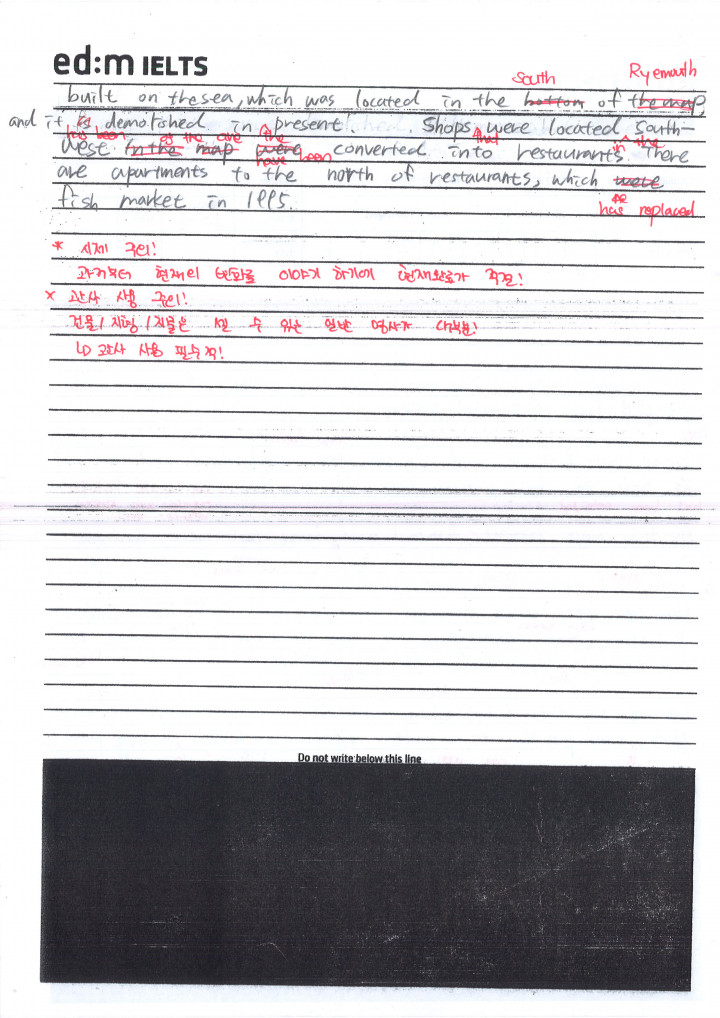 ed:m IELTS
south Ryemouth
built on the sea, which was located in the bottom of the map,
and it is demolished in present. Shops were located south-
has been of the are the that in the
west in the map were converted into restaurants. There
have been
are apartments to the north of restaurants, which were
fish market in 1995.
has replaced
* 시제 주의!
과거부터 현재의 변화를 이야기 하기에 현재완료가 적절!
* 관사 사용 주의!
건물/지형/지물은 셀 수 있는 일반 명사가 대부분!
↳ 관사 사용 필수적!
Do not write below this line